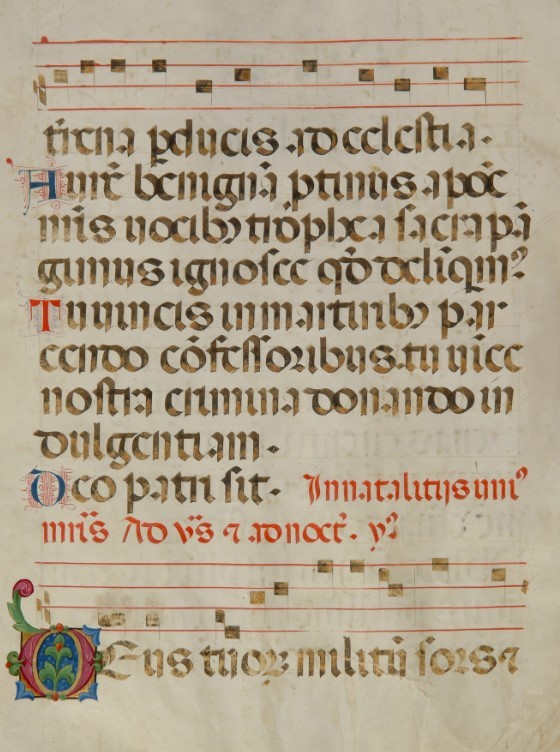 t̄rena p̱ducis ad celestia.
Aurē benignā ptinus apōe
nr̄is vocibꝫ tropħea sacra pā
gimus ignosce qđ deliqim᷒
Tu vincis in martiribꝫ par
cendo cōfessoribus. tu vice
nostra crimina donando in
dulgentiam.
Deo patri sit. In natalitijs uni᷒
mr̄is Ad vs̄ ⁊ ad noct̄. y᷒
Deus tuoꝝ militū sors ⁊